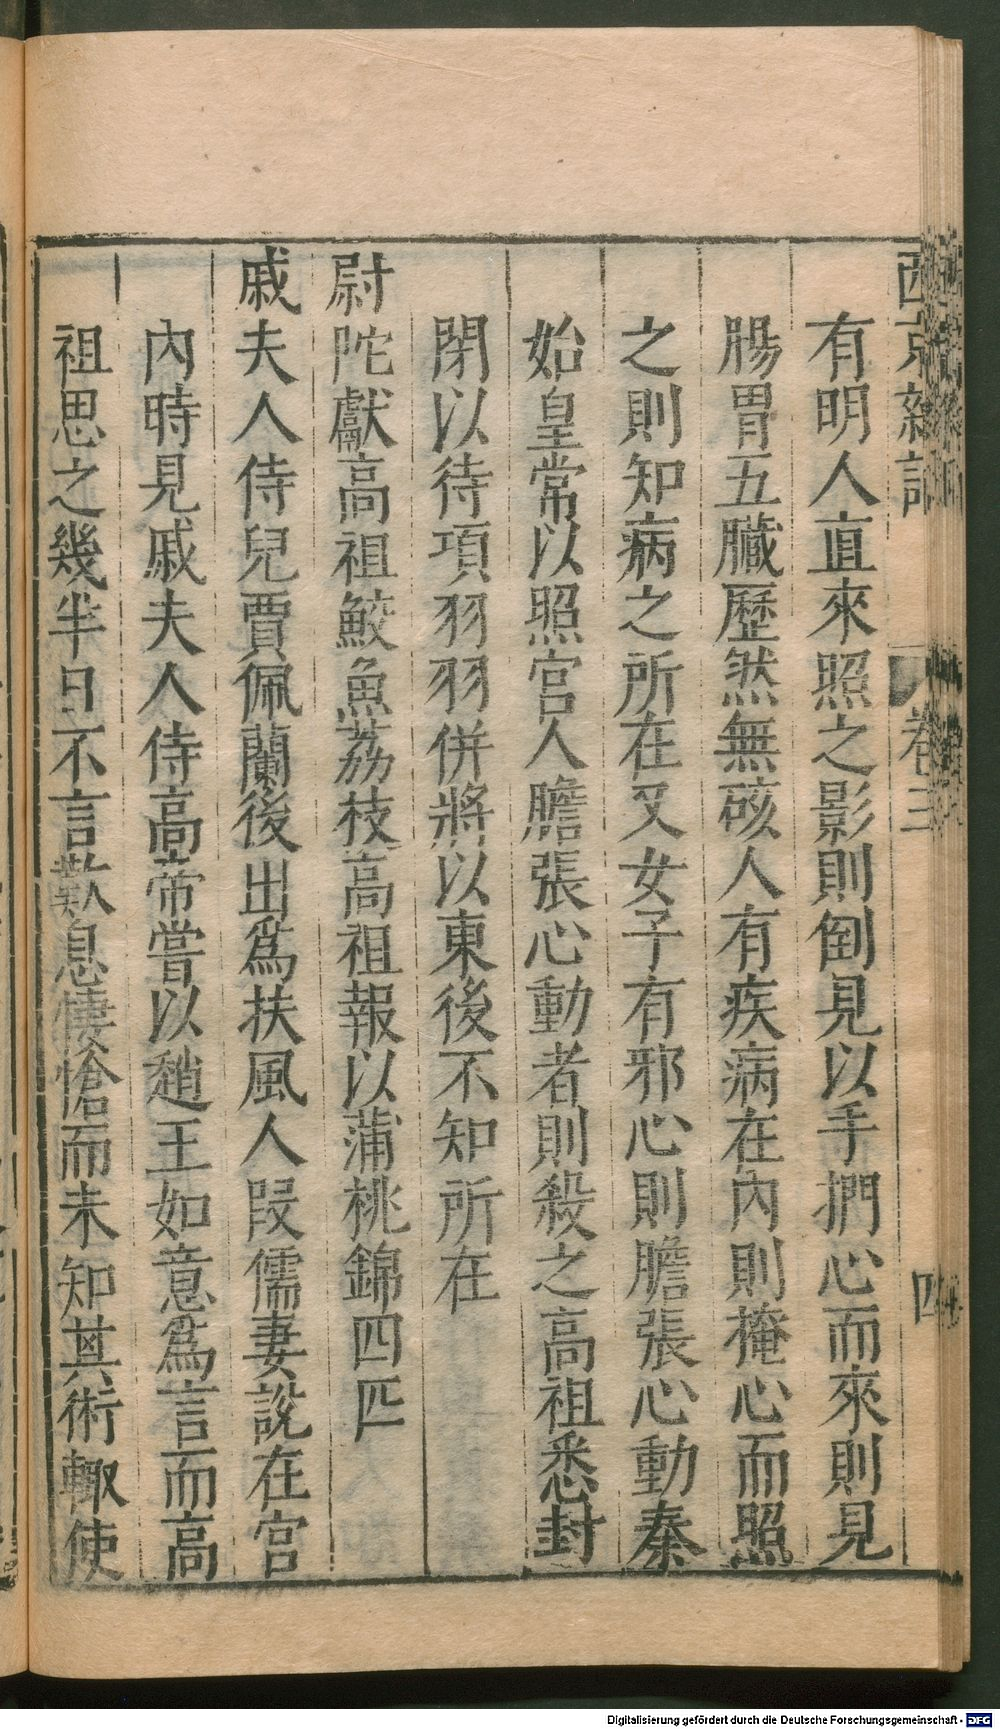 西京雜記 卷三 四
有明人直來照之影則倒見以手捫心而來則見
腸胃五臟歷然無硋人有疾病在內則掩心而照
之則知病之所在又女子有邪心則膽張心動秦
始皇常以照宮人膽張心動者則殺之高祖悉封
閉以待項羽羽併將以東後不知所在
尉陀獻高祖鮫魚荔枝高祖報以蒲桃錦四匹
戚夫人侍兒賈佩蘭後出爲扶風人叚儒妻說在宮
內時見戚夫人侍高帝嘗以趙王如意爲言而高
祖思之幾半日不言歎息悽愴而未知其術輙使
Digitalisierung gefördert durch die Deutsche Forschungsgemeinschaft - DFG